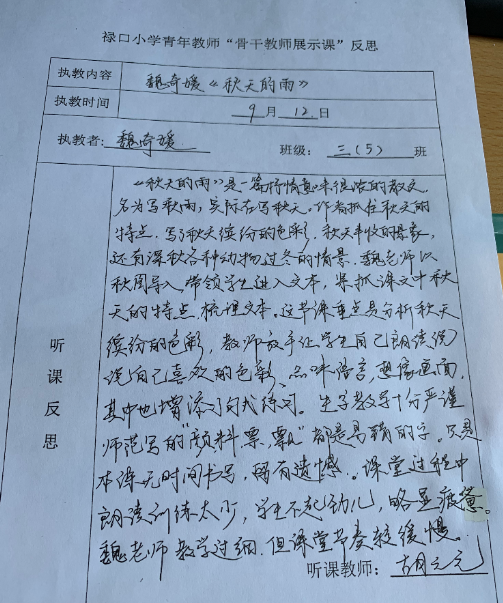 禄口小学青年教师“骨干教师展示课”反思
执教内容 魏奇媛《秋天的雨》
执教时间 9月12日
执教者:魏奇媛 班级:三(5)班
听课反思
《秋天的雨》是一篇抒情意味很浓的散文.
名为写秋雨,实际在写秋天.作者抓住秋天的
特点.写了秋天缤纷的色彩,秋天丰收的景象,
还有深秋各种动物过冬的情景.魏老师以
秋周导入,带领学生进入文本,紧抓课文中秋
天的特点,梳理文本。这节课重点是分析秋天
缤纷的色彩,教师放手让学生自己朗读说
说自己喜欢的色彩、品味语言,想像画面,
其中也增添了句式练习。生字教学十分严谨
师范写的“颜料票,飘”都是易错的字。只是
本课无时间书写,稍有遗憾。课堂过程中
朗读训练太少,学生不起劲儿,略显疲惫。
魏老师教学过细.但课堂节奏较缓慢.
听课教师:胡元元